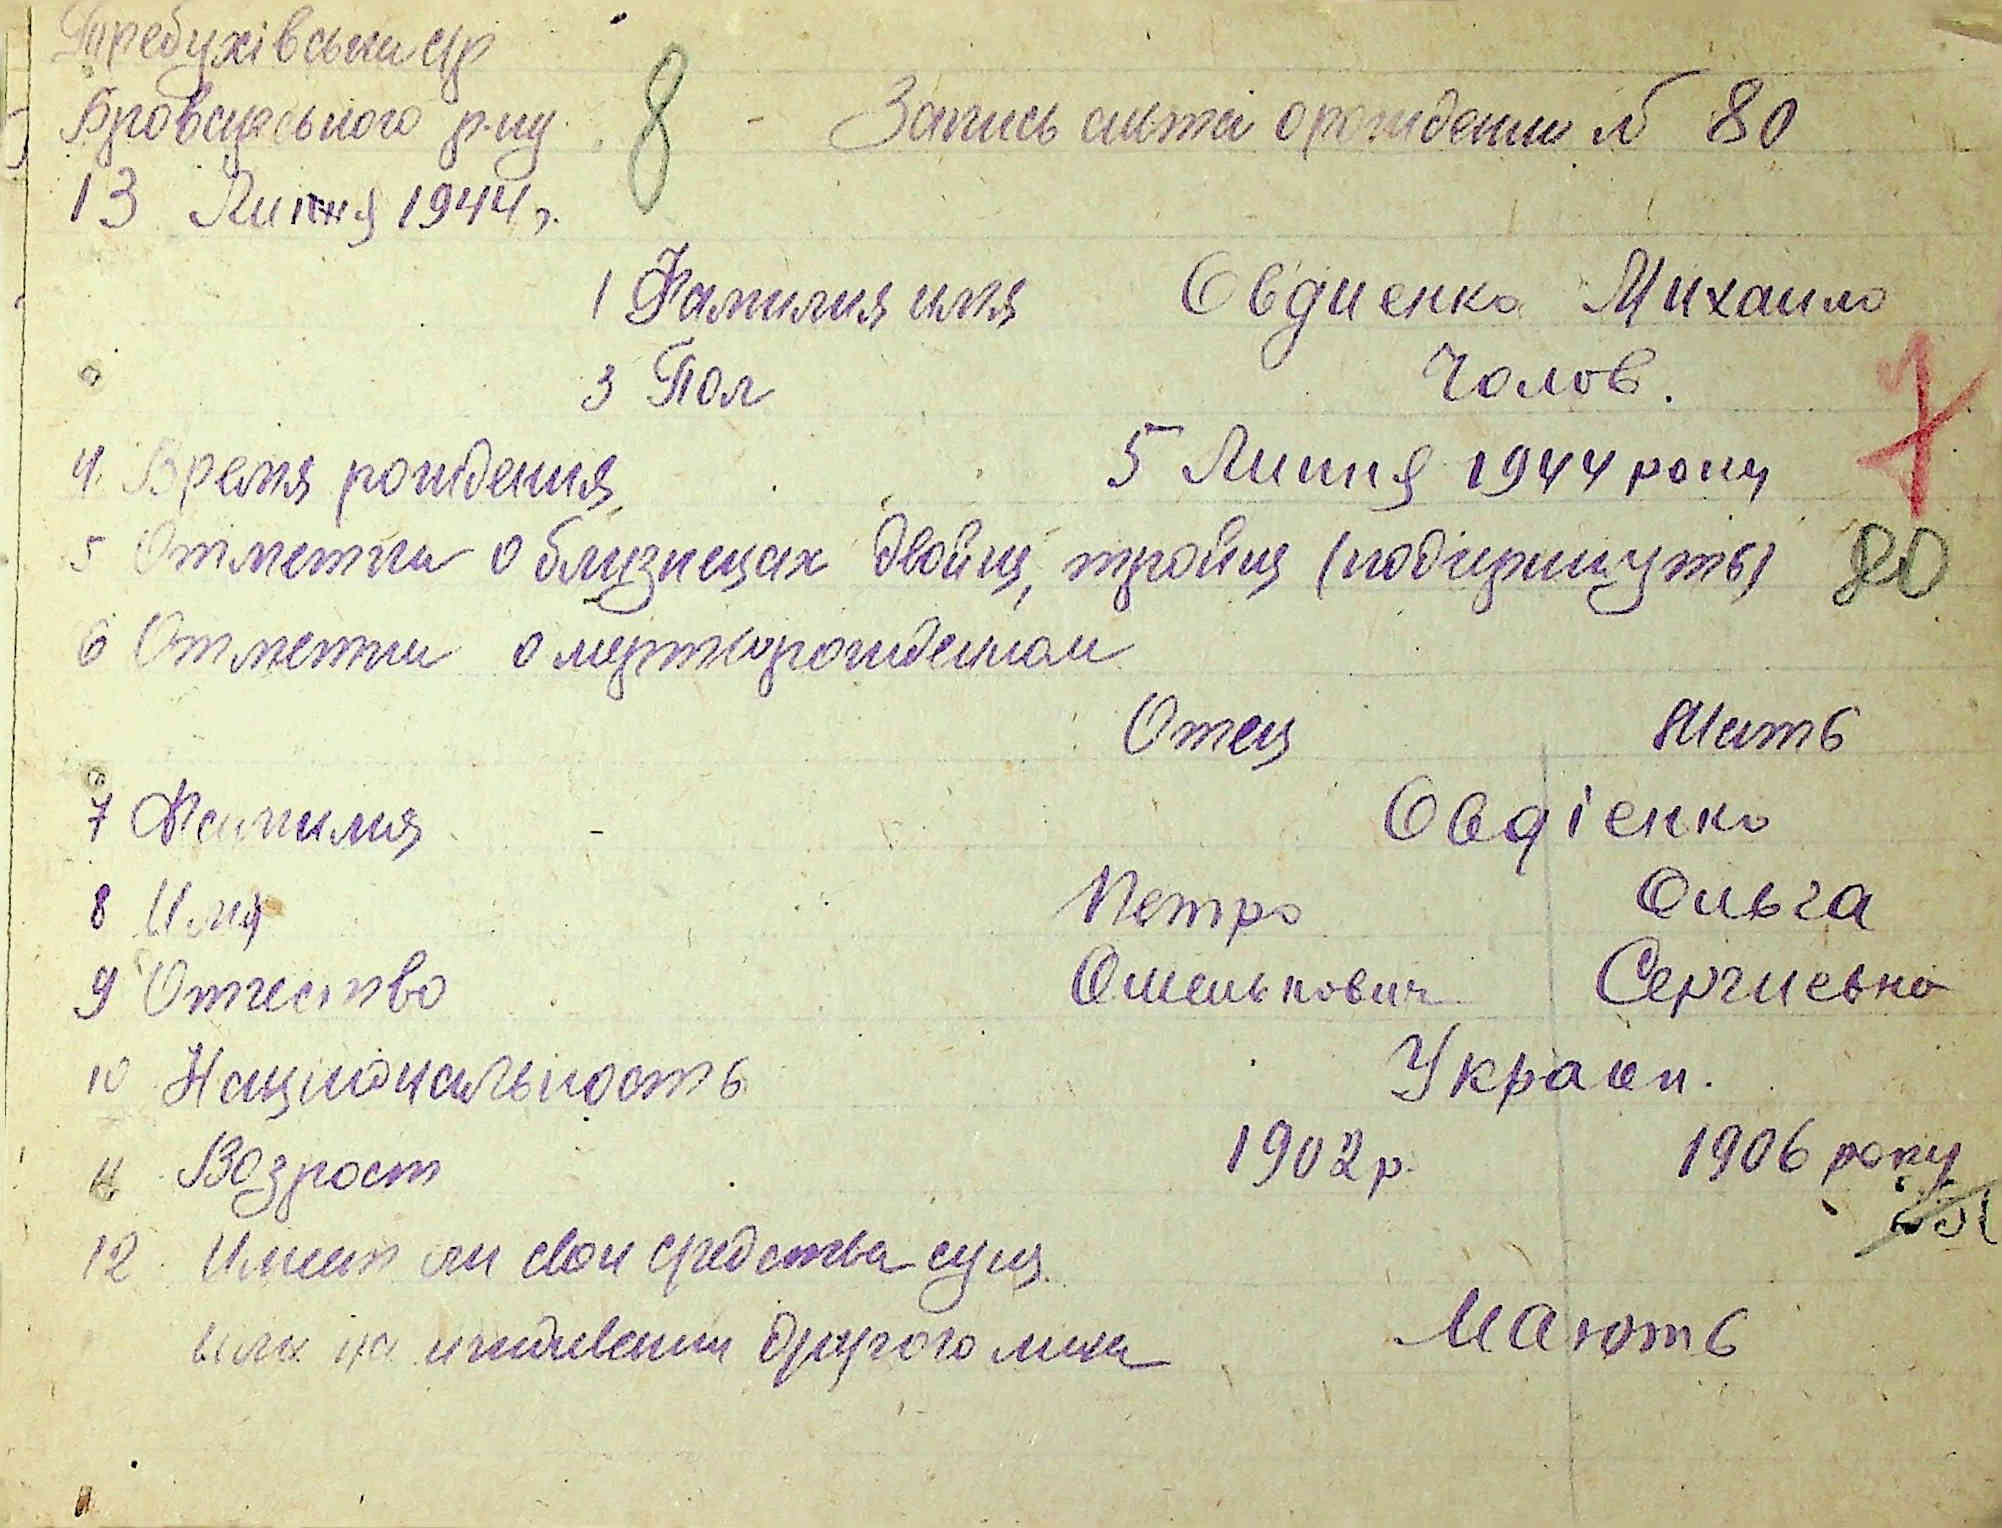 Требухівськи с/р
Броварського р-ну 8 - Запись акта о рождении № 80
13 Липня 1944 г.
1 Фамилия имя Овдиенко Михаило
3 Пол Чолов.
4. Время рождения 5 Липня 1944 року
5 Отметки о близнецах двойня, тройня (подчеркнуть) 80
6 Отметки о мертворожденном
Отец Мать
7 Фамилия - Овдіенко
8 Имя Петро Ольга
9 Отчество Омелькович Сергиевна
10 Національность Украин.
11 Возрост 1902 р. 1906 року
12 Имеет ли свои средства сущ.
или на иждивении другого лица Мають